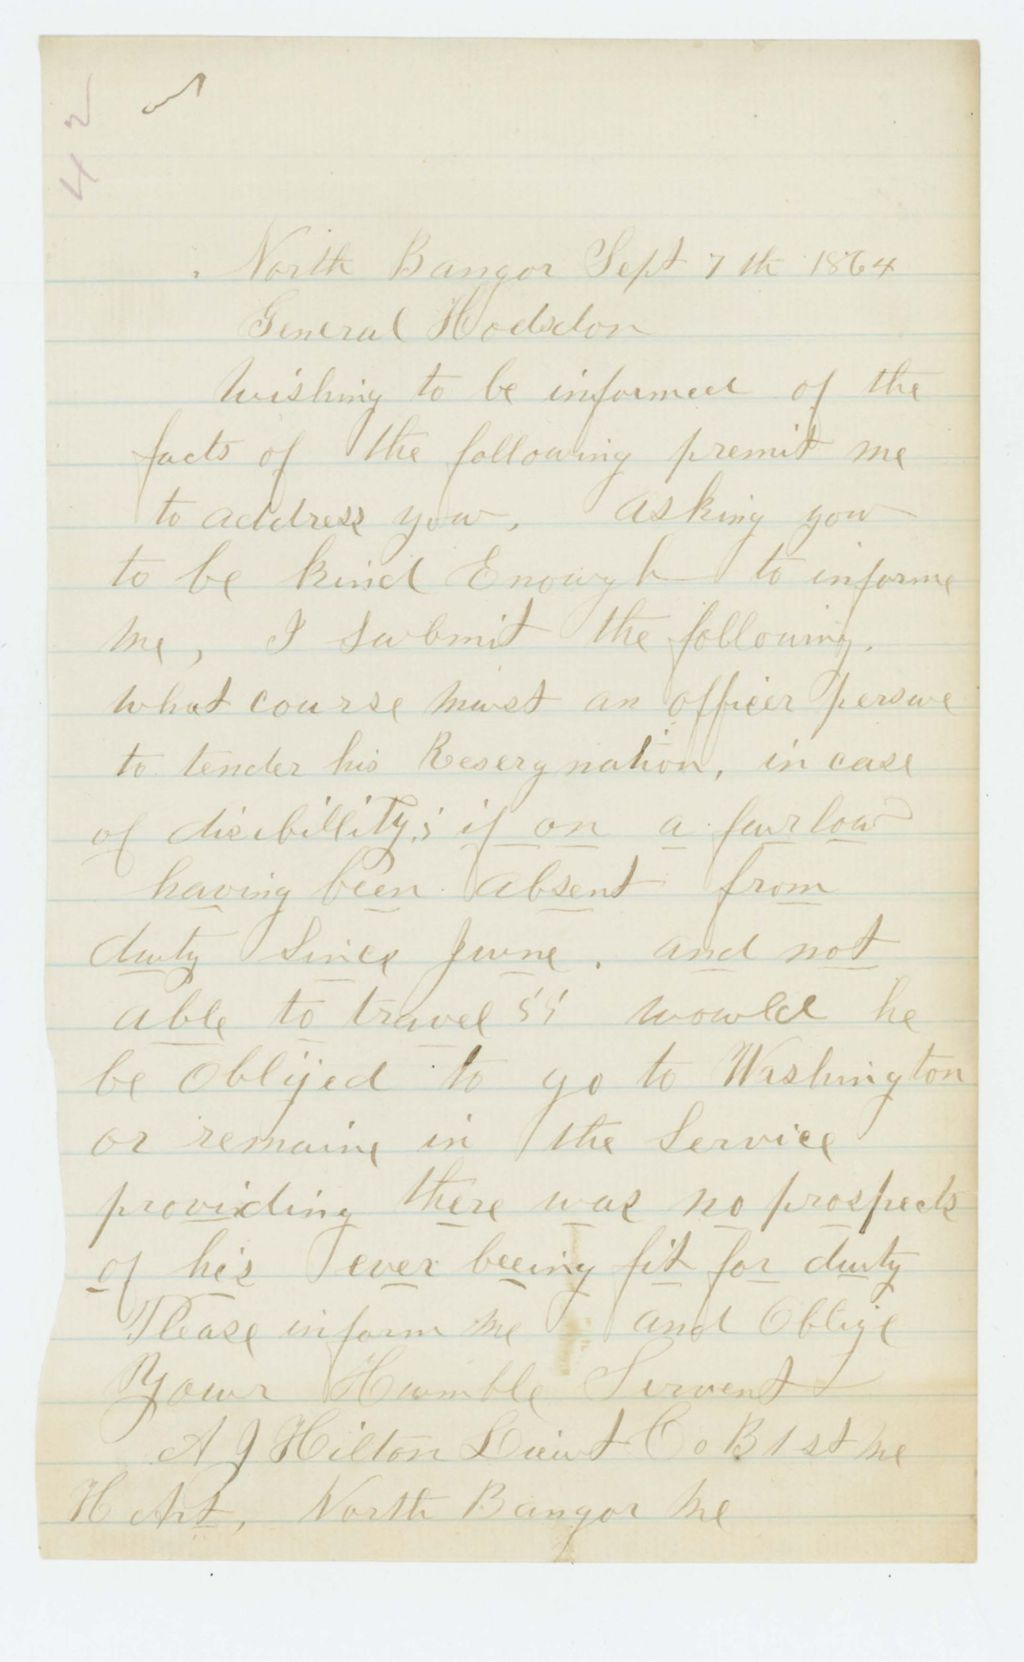 42
North Bangor Sept 7th 1864
General Hodsdon
Wishing to be informed of the
facts of the following premit me
to address you, asking you
to be kind Enough to informe
me, I submit the following.
what course must an officer persue
to tender his Reserygnation, in case
of disibillity; if on a furlow
having been absent from
duty Since June. and not
able to travel would he
be Oblijed to go to Washington
or remaine in the Service
providing there was no prospects
of his ever beeing fit for duty
Please inform me and Oblige
Your Humble Servent
A J Hilton Lieut Co B 1st Me
H Art, North Bangor Me